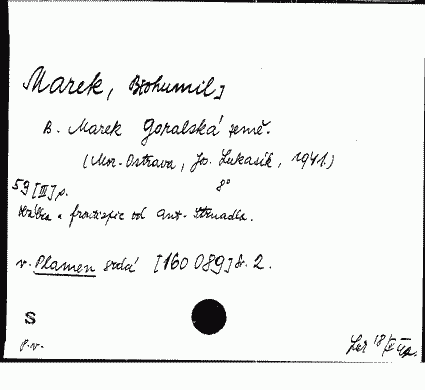 Marek, B[ohumil]
B. Marek Goralská země.
(Mor. Ostrava, Jos. Lukasík, 1941.)
59 [III] p. 8°
Obálka a frontispic od Ant. Strnadla.
v. Plamen srdcí [160 089] č. 2.
S
p.v.